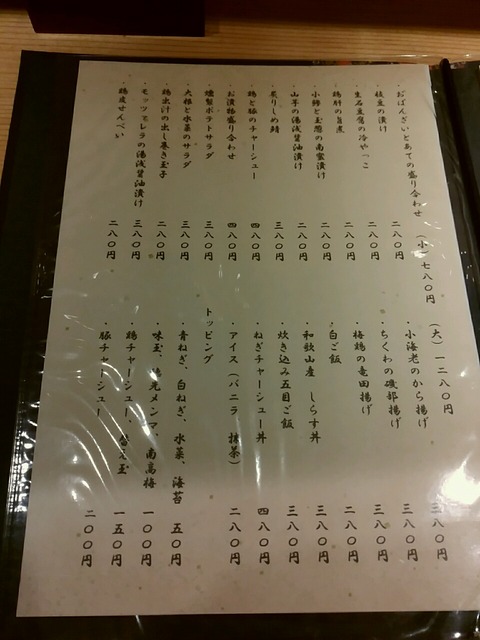 ・おばんざいとあての盛り合わせ (小)七八〇円
(大)一二八〇円
・枝豆の漬け 二八〇円
・生石豆腐の冷やっこ 二八〇円
・鶏肝の旨煮 二八〇円
・小鯵と玉葱の南蛮漬け 二八〇円
・山芋の湯浅醤油漬け 二八〇円
・炙りしめ鯖 三八〇円
・鶏と豚のチャーシュー 四八〇円
・お漬物盛り合わせ 四八〇円
・燻製ポテトサラダ 三八〇円
・大根と水菜のサラダ 三八〇円
・鶏出汁の出し巻き玉子 二八〇円
・モッツァレラの湯浅醤油漬け 三八〇円
・鶏皮せんべい 二八〇円
・小海老のから揚げ 三八〇円
・ちくわの磯部揚げ 三八〇円
・梅鶏の竜田揚げ 三八〇円
・白ご飯 二八〇円
・和歌山産 しらす丼 三八〇円
・炊き込み五目ご飯 三八〇円
・ねぎチャーシュー丼 四八〇円
・アイス(バニラ 抹茶) 二八〇円
トッピング
・青ねぎ、白ねぎ、水菜、海苔 五〇円
・味玉、穂先メンマ、南高梅 一〇〇円
・鶏チャーシュー、替え玉 一五〇円
・豚チャーシュー 二〇〇円